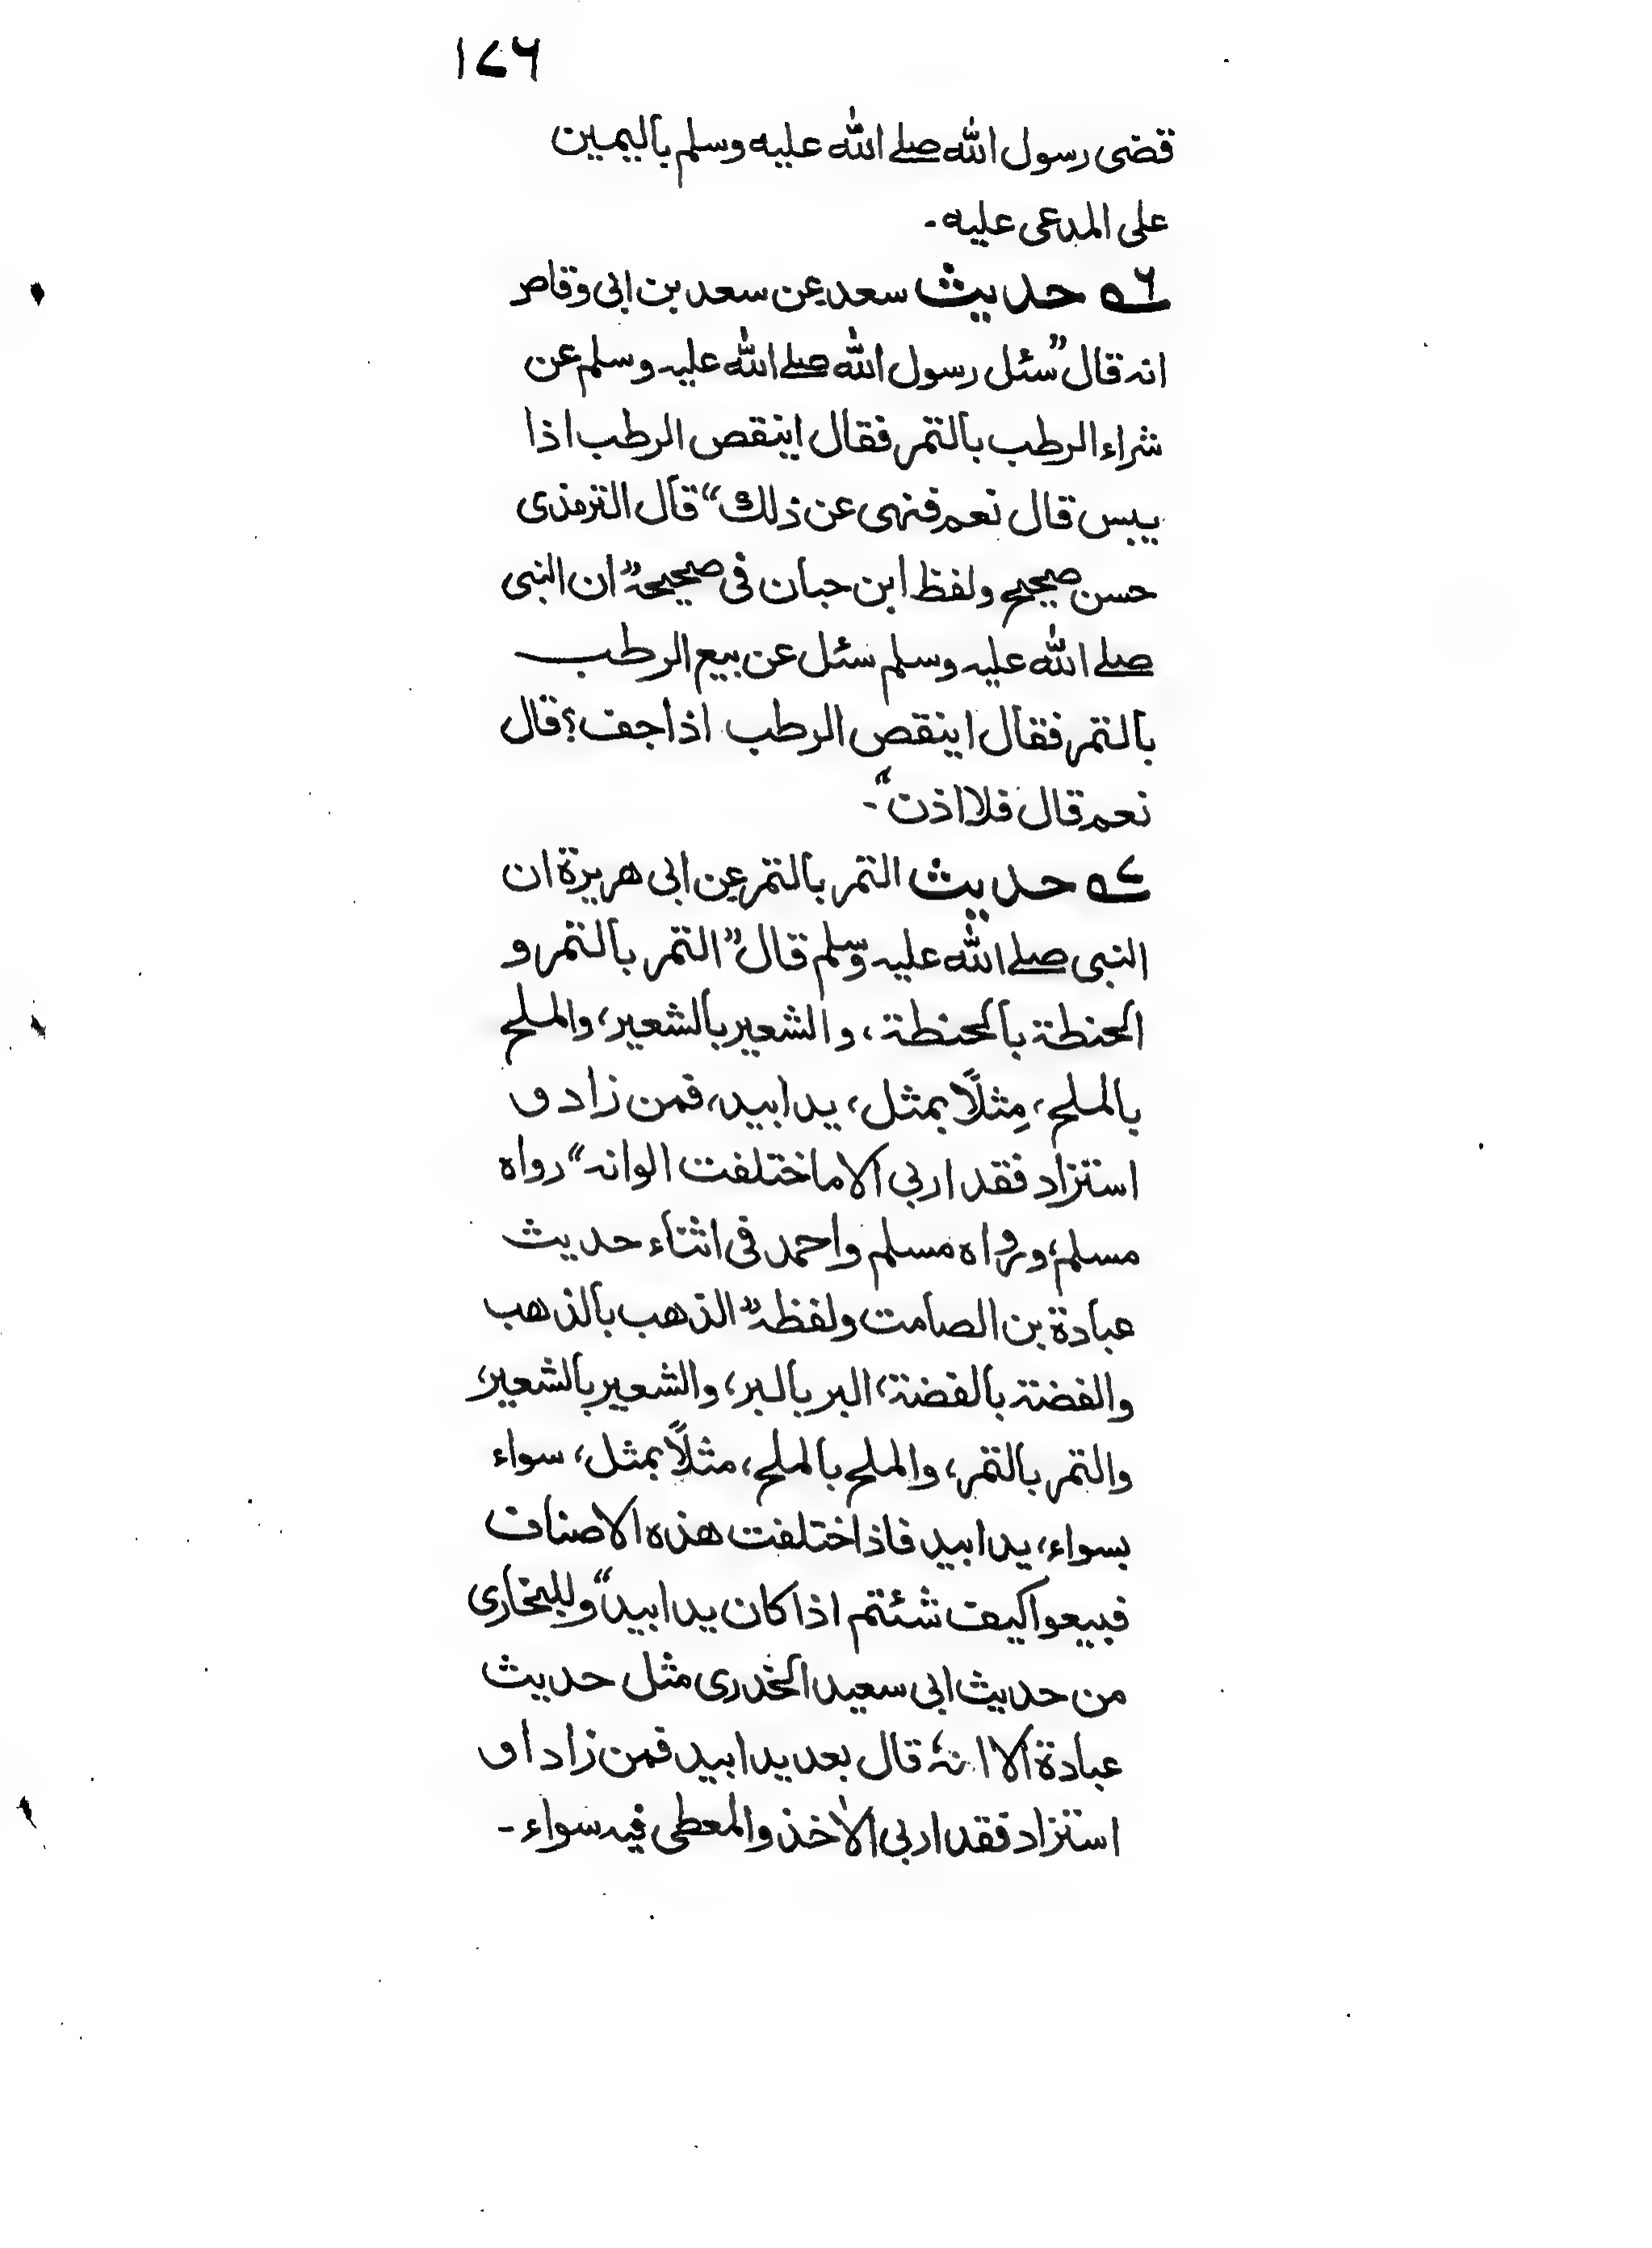 ۱۷۶
قضى رسول الله صلے الله عليه وسلم باليمين
على المدعى عليه ـ
۶؎ حديث سعد عن سعد بن ابى وقاص
انه قال ”سئل رسول الله صلے الله عليه وسلم عن
شراء الرطب بالتمر فقال اينقص الرطب اذا
يبس قال نعم فنهى عن ذلك“ قال الترمذى
حسن صحيح ولفظ ابن حبان فى صحيحه” ان النبى
صلے الله عليه وسلم سئل عن بيع الرطب
بالتمر فقال اينقص الرطب اذا جف؟ قال
نعم قال فلا اذن“ـ
۷؎ حديث التمر بالتمر عن ابى هريرة ان
النبى صلے الله عليه وسلم قال ”التمر بالتمر و
الحنطة بالحنطة، والشعير بالشعير، والملح
بالملح، مِثلًا بمثل، يدا بيد، فمن زاد و
استزاد فقد اربى الا ما ختلفت الوانه“ رواه
مسلم، ورواه مسلم واحمد فى اثناء حديث
عبادة بن الصامت ولفظه ”الذهب بالذهب
والفضة بالفضة، البر بالبر، والشعير بالشعير،
والتمر بالتمر، والملح بالملح، مثلًا بمثل، سواء
بسواء، يدا بيد فاذا ختلفت هذه الاصناف
فبيعوا كيف شئتم اذا كان يدا بيد“ وللبخارى
من حديث ابى سعيد الخدرى مثل حديث
عبادة الا انهٗ قال بعد يدا بيد فمن زاد او
استزاد فقد اربى الاٰخذ والمعطى فيه سواء ـ